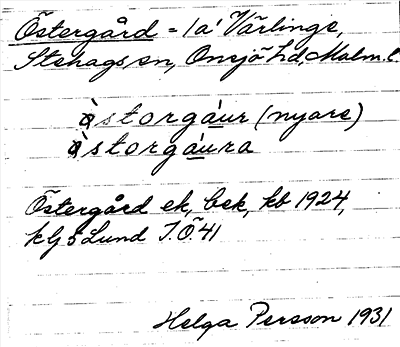 Östergård = 1a' Värlinge,
Stehags sn, Onsjö hd, Malm. l.
òstorgáur (nyare)
òstorgáura
Östergård ek, bek, kb 1924,
Lund J.Ö. 41
Helga Persson 1931